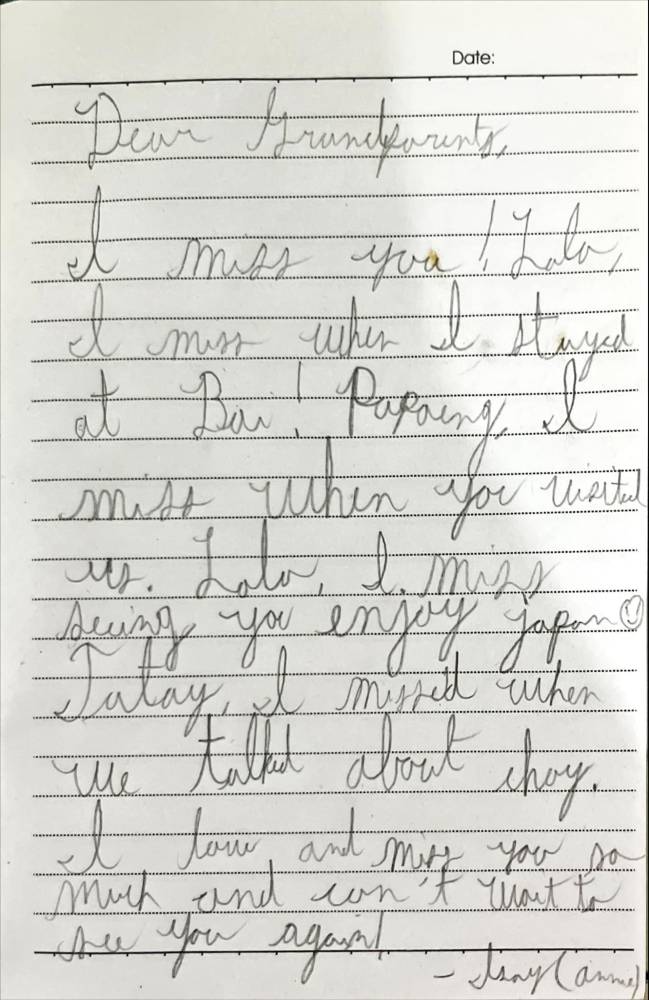 Date:
Dear Grandparents,
I miss you! Lola,
I miss when I stayed
at Bai! Papaeng, I
miss when you visited
us. Lola, I miss
seeing you enjoy japan
Tatay, I missed when
we talked about
I love and miss you so
much and can't wait to
see you again!